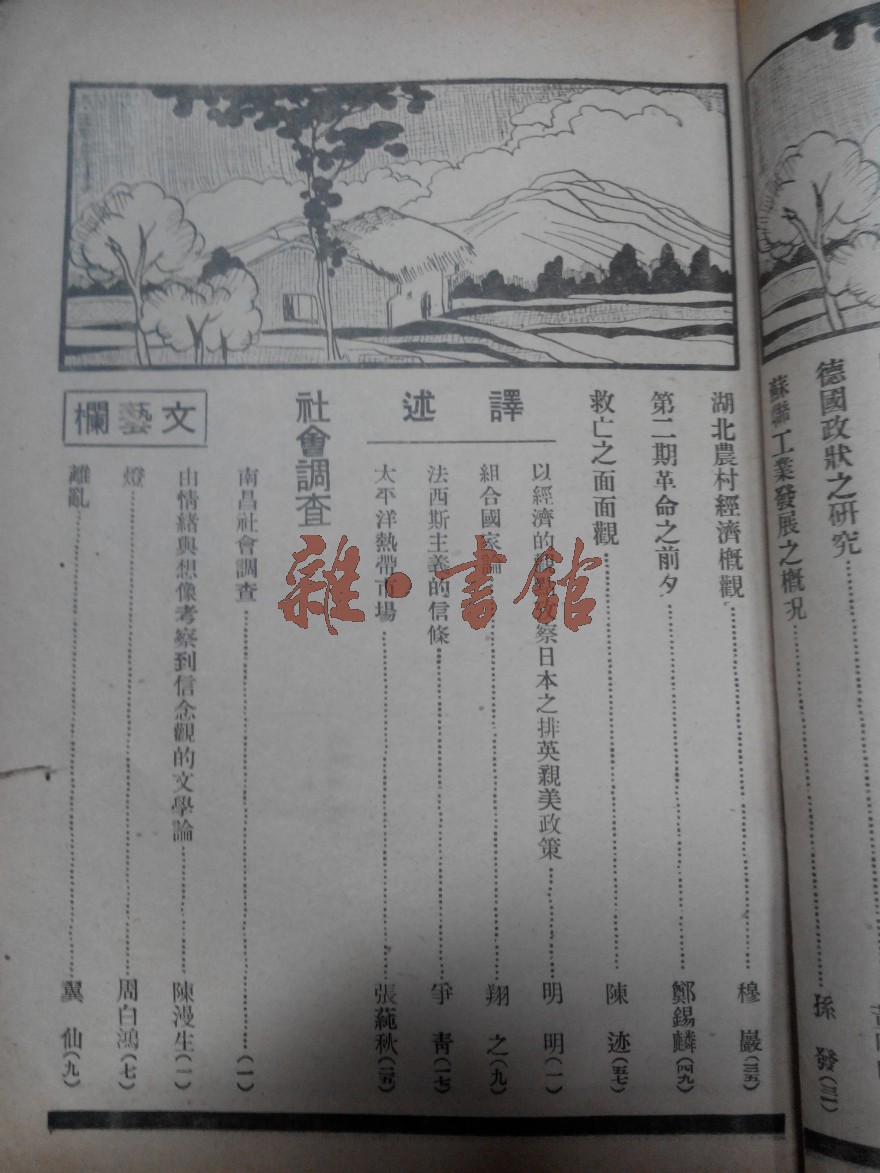 德國政狀之研究……孫發(三一)
蘇聯工業發展之概況
湖北農村經濟概觀……穆巖(三五)
第二期革命之前夕……鄭錫麟(四九)
救亡之面面觀……陳迹(五七)
譯述
以經濟的觀點攷察日本之排英親美政策……明明(一)
組合國家論……翔之(九)
法西斯主義的信條……爭青(一七)
太平洋熱帶市場……張蒓秋(二五)
社會調查
南昌社會調查……(一)
文藝欄
由情緒與想像考察到信念觀的文學論……陳漫生(一)
燈……周白鴻(七)
離亂……翼仙(九)
雜·書館